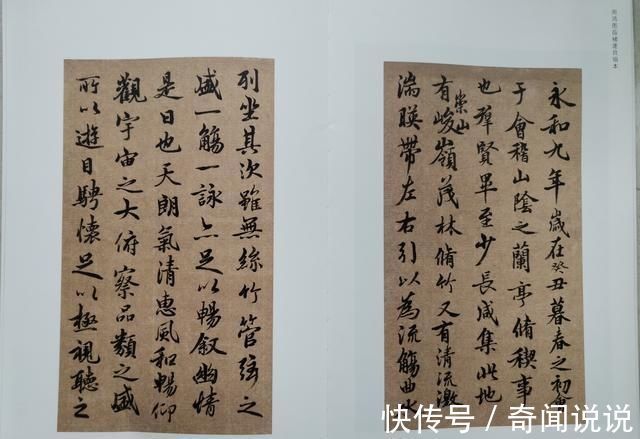 永和九年歲在癸丑暮春之初會
于會稽山陰之蘭亭脩稧事
也羣賢畢至少長咸集此地
有崇山峻嶺茂林脩竹又有清流激
湍暎帶左右引以為流觴曲水
列坐其次雖無絲竹管弦之
盛一觴一詠亦足以暢叙幽情
是日也天朗氣清惠風和暢仰
觀宇宙之大俯察品類之盛
所以遊目騁懷足以極視聽之
快传号/奇闻说说